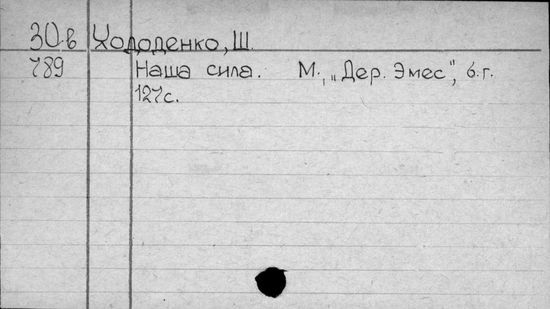 30.в Хододенко, Ш.
789 Наша сила. М., „Дер. Эмес", б.г.
127с.